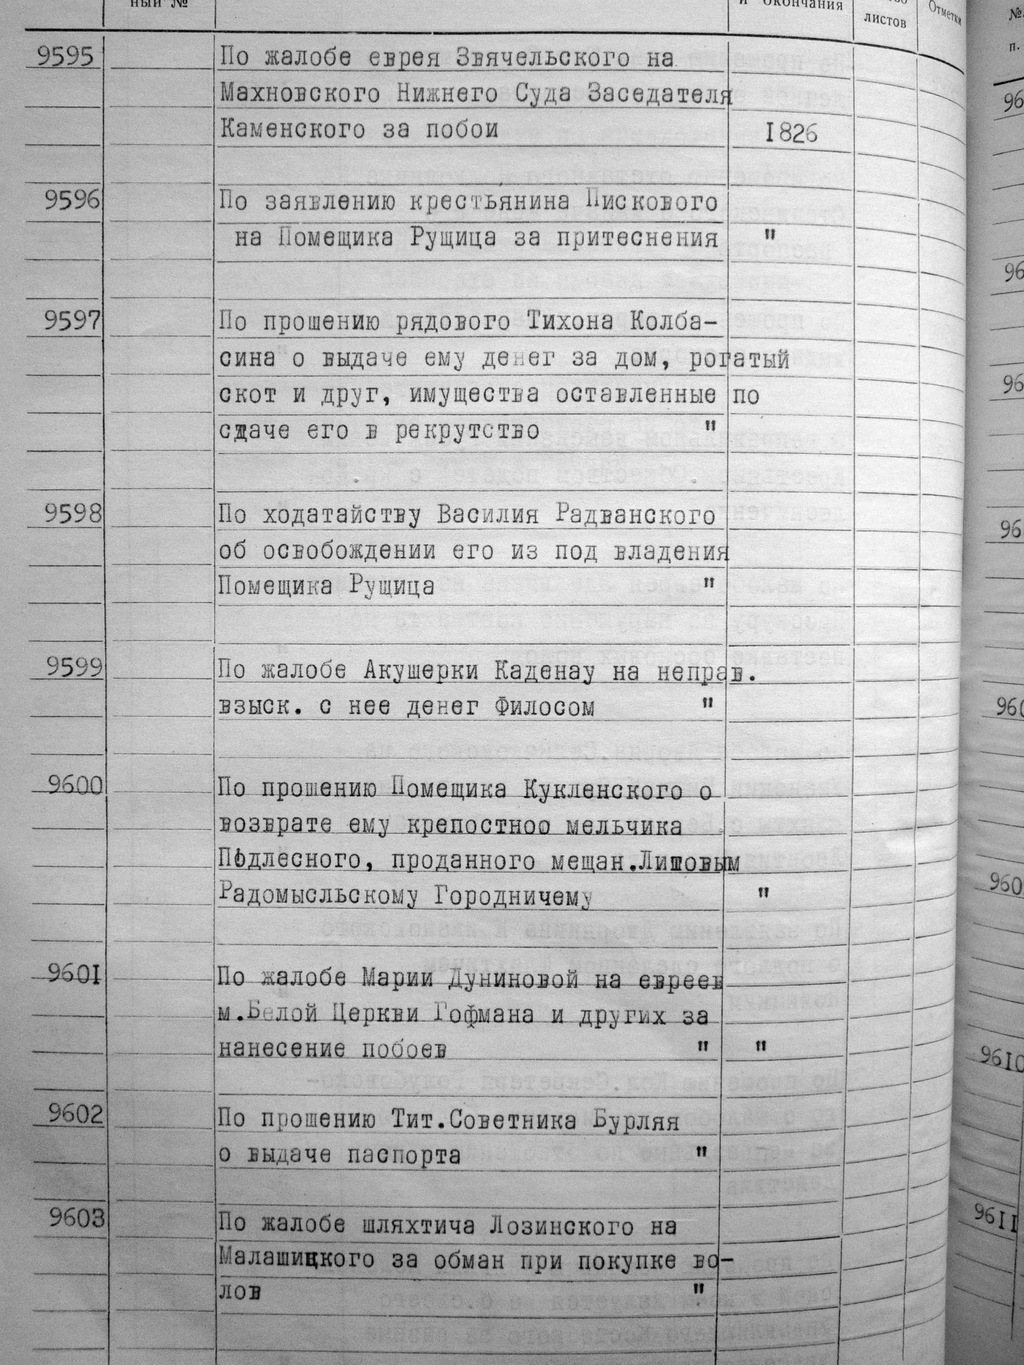 ный №
и окончания
листов
Отметки
№
п.
9595 По жалобе еврея Звячельского на
Махновского Нижнего Суда Заседателя
Каменского за побои 1826
9596 По заявлению крестьянина Пискового
на Помещика Рущица за притеснения "
9597 По прошению рядового Тихона Колба-
сина о выдаче ему денег за дом, рогатый
скот и друг, имущества оставленные по
сдаче его в рекрутство "
9598 По ходатайству Василия Радванского
об освобождении его из под владения
Помещика Рущица "
9599 По жалобе Акушерки Каденау на неправ.
взыск. с нее денег Филосом "
9600 По прошению Помещика Кукленского о
возврате ему крепостноо мельчика
Подлесного, проданного мещан.Литовым
Радомысльскому Городничему "
9601 По жалобе Марии Дуниновой на евреев
м.Белой Церкви Гофмана и других за
нанесение побоев " "
9602 По прошению Тит.Советника Бурляя
о выдаче паспорта "
9603 По жалобе шляхтича Лозинского на
Малашицкого за обман при покупке во-
лов "
96
96
96
96
960
960
9610
9611